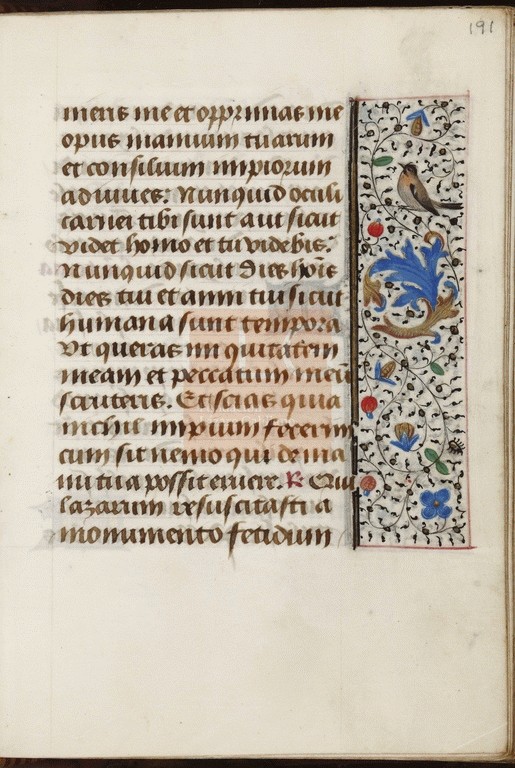 191
meris me et opprimas me
opus manuum tuarum
et consilium impiorum
adiuues. Nunquid oculi
carnei tibi sunt aut sicut
videt homo et tu videbis.
Nunquid sicut dies hōis
dies tui et anni tui sicut
humana sunt tempora
Vt queras iniquitatem
meam et peccatum meū
scruteris. Et scias quia
nichil impium fecerim
cum sit nemo qui de ma
nu tua possit eruere. R Qui
lazarum resuscitasti a
monumento fetidum